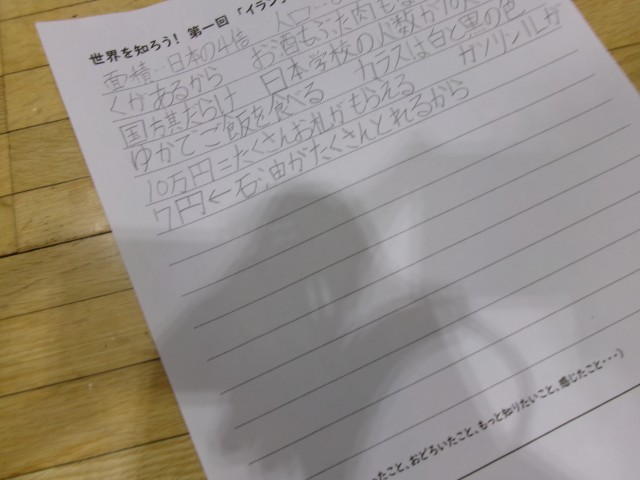 世界を知ろう! 第一回 「イラン
面積…日本の4倍 人口…
くがあるから お酒もぶた肉も
国旗だらけ 日本学校の人数が10人
ゆかでご飯を食べる カラスは白と黒の色
10万円=たくさんお札がもらえる ガソリン1Lが
7円←石油がたくさんとれるから
いたこと、おどろいたこと、もっと知りたいこと、感じたこと・・・)